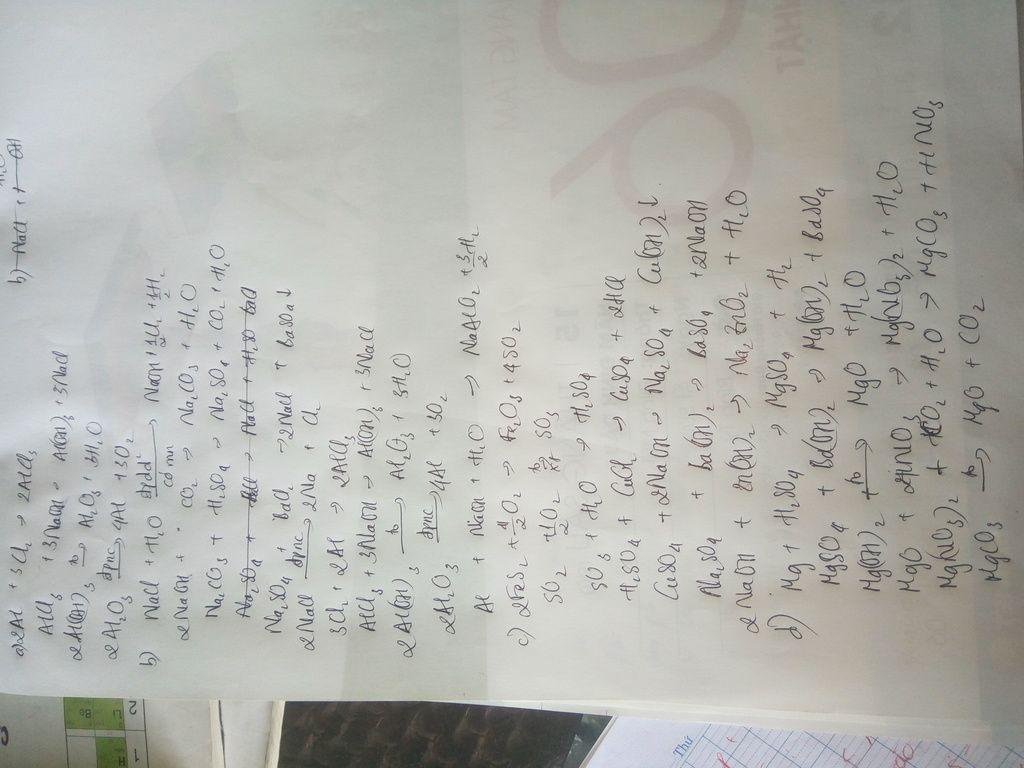 a) 2Al + 3Cl2 → 2AlCl3
AlCl3 + 3NaOH → Al(OH)3 + 3NaCl
2Al(OH)3 →(to) Al2O3 + 3H2O
2Al2O3 →(đpnc) 4Al + 3O2
b) NaCl + H2O →(đpdd, có mn) NaOH + 1/2Cl2 + 1/2H2
2NaOH + CO2 → Na2CO3 + H2O
Na2CO3 + H2SO4 → Na2SO4 + CO2 + H2O
Na2SO4 + BaCl2 → 2NaCl + BaSO4↓
2NaCl →(đpnc) 2Na + Cl2
3Cl2 + 2Al → 2AlCl3
AlCl3 + 3NaOH → Al(OH)3 + 3NaCl
2Al(OH)3 →(to) Al2O3 + 3H2O
2Al2O3 →(đpnc) 4Al + 3O2
Al + NaOH + H2O → NaAlO2 + 3/2H2
c) 2FeS2 + 11/2O2 → Fe2O3 + 4SO2
SO2 + 1/2O2 →(to, xt) SO3
SO3 + H2O → H2SO4
H2SO4 + CuCl2 → CuSO4 + 2HCl
CuSO4 + 2NaOH → Na2SO4 + Cu(OH)2↓
Na2SO4 + Ba(OH)2 → BaSO4 + 2NaOH
2NaOH + Zn(OH)2 → Na2ZnO2 + H2O
d) Mg + H2SO4 → MgSO4 + H2
MgSO4 + Ba(OH)2 → Mg(OH)2 + BaSO4
Mg(OH)2 →(to) MgO + H2O
MgO + 2HNO3 → Mg(NO3)2 + H2O
Mg(NO3)2 + CO2 + H2O → MgCO3 + HNO3
MgCO3 →(to) MgO + CO2
b) NaCl +
Thứ